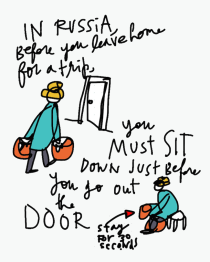 IN RUSSIA
Before you leave home
for a trip
you
MUST SIT
DOWN JUST Before
you go out
the
DOOR
stay
for 30
seconds